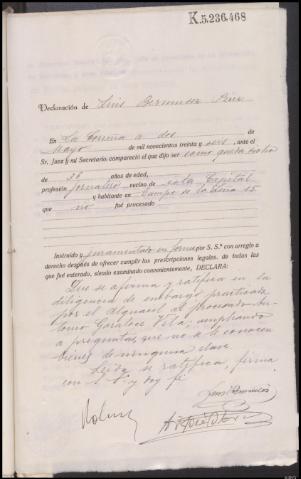 K.5.236.468
Declaración de Luis Bermudez Pérez
En La Coruña a dos de
Mayo de mil novecientos treinta y seis, ante el
Sr. Juez y mi Secretario compareció el que dijo ser como queda dicho
de 36 años de edad,
profesión Jornalero vecino de esta Capital
y habitante en Campo de la Leña 15
que no fué procesado
Instruído y juramentado en forma por S. S.ª con arreglo a
derecho después de ofrecer cumplir las prescripciones legales, de todas las
que fué enterado, siendo examinado convenientemente, DECLARA:
Que se afirma y ratifica en la
diligencia de embargo practicada
por el Alguacil al procesado An-
tonio Vila; ampliando
a preguntas, que no le conocen
bienes de ninguna clase
Leida se ratifica, firma
con S. Sª y doy fé
Luis Bermudez